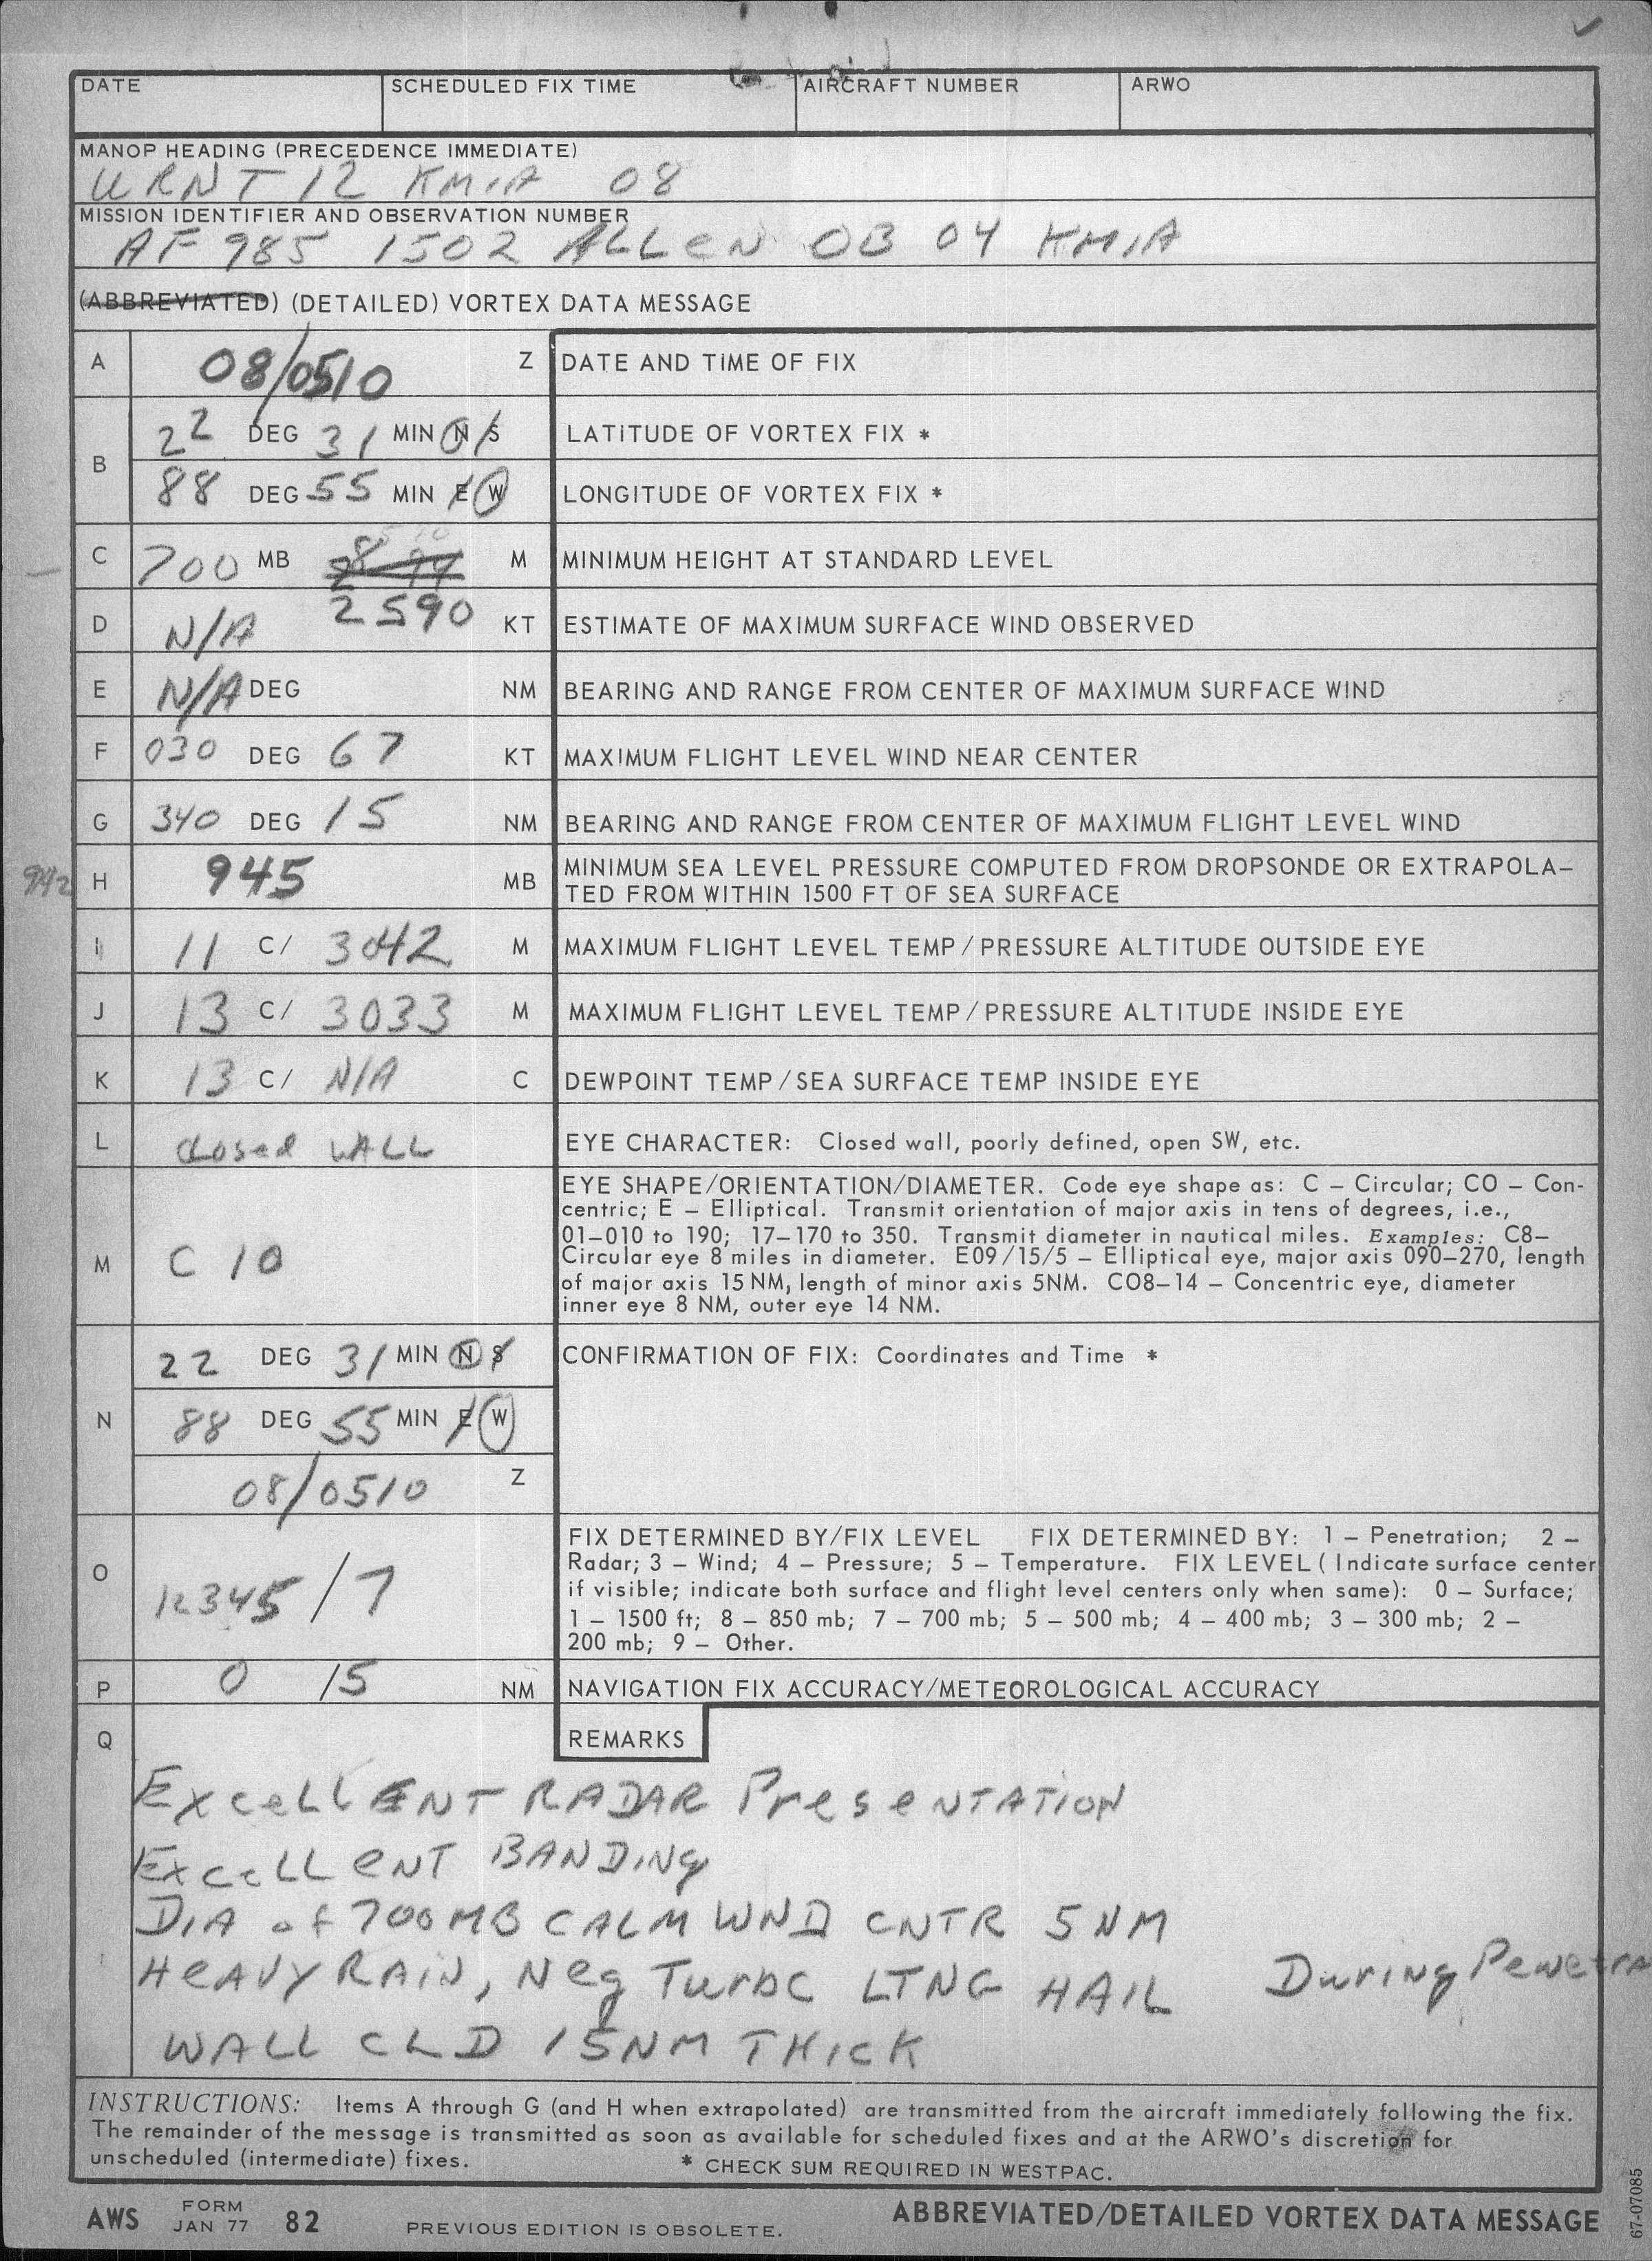 DATE SCHEDULED FIX TIME AIRCRAFT NUMBER ARWO
MANOP HEADING (PRECEDENCE IMMEDIATE)
URNT 12 KMIA 08
MISSION IDENTIFIER AND OBSERVATION NUMBER
AF 985 1502 ALLEN OB 04 KMIA
(ABBREVIATED) (DETAILED) VORTEX DATA MESSAGE
A 08/0510 Z DATE AND TIME OF FIX
B 22 DEG 31 MIN N/S LATITUDE OF VORTEX FIX *
88 DEG 55 MIN E/W LONGITUDE OF VORTEX FIX *
C 700 MB M MINIMUM HEIGHT AT STANDARD LEVEL
2590
D N/A KT ESTIMATE OF MAXIMUM SURFACE WIND OBSERVED
E N/A DEG NM BEARING AND RANGE FROM CENTER OF MAXIMUM SURFACE WIND
F 030 DEG 67 KT MAXIMUM FLIGHT LEVEL WIND NEAR CENTER
G 340 DEG 15 NM BEARING AND RANGE FROM CENTER OF MAXIMUM FLIGHT LEVEL WIND
942 H 945 MB MINIMUM SEA LEVEL PRESSURE COMPUTED FROM DROPSONDE OR EXTRAPOLA–
TED FROM WITHIN 1500 FT OF SEA SURFACE
I 11 C/ 3042 M MAXIMUM FLIGHT LEVEL TEMP/PRESSURE ALTITUDE OUTSIDE EYE
J 13 C/ 3033 M MAXIMUM FLIGHT LEVEL TEMP/PRESSURE ALTITUDE INSIDE EYE
K 13 C/ N/A C DEWPOINT TEMP/SEA SURFACE TEMP INSIDE EYE
L Closed WALL EYE CHARACTER: Closed wall, poorly defined, open SW, etc.
M C 10 EYE SHAPE/ORIENTATION/DIAMETER. Code eye shape as: C – Circular; CO – Con-
centric; E – Elliptical. Transmit orientation of major axis in tens of degrees, i.e.,
01–010 to 190; 17–170 to 350. Transmit diameter in nautical miles. Examples: C8–
Circular eye 8 miles in diameter. E09/15/5 – Elliptical eye, major axis 090–270, length
of major axis 15 NM, length of minor axis 5NM. CO8–14 – Concentric eye, diameter
inner eye 8 NM, outer eye 14 NM.
N 22 DEG 31 MIN N S CONFIRMATION OF FIX: Coordinates and Time *
88 DEG 55 MIN E/W
08/0510 Z
O 12345/7 FIX DETERMINED BY/FIX LEVEL FIX DETERMINED BY: 1 – Penetration; 2 –
Radar; 3 – Wind; 4 – Pressure; 5 – Temperature. FIX LEVEL (Indicate surface center
if visible; indicate both surface and flight level centers only when same): 0 – Surface;
1 – 1500 ft; 8 – 850 mb; 7 – 700 mb; 5 – 500 mb; 4 – 400 mb; 3 – 300 mb; 2 –
200 mb; 9 – Other.
P 0 /5 NM NAVIGATION FIX ACCURACY/METEOROLOGICAL ACCURACY
Q REMARKS
ExcelLENT RADAR PresENTATION
ExcelLENT BANDINg
DIA of 700MB CALM WND CNTR 5 NM
HEAVY RAIN, Neg TurbC LTNG HAIL During Penetra
WALL CLD 15NM THICK
INSTRUCTIONS: Items A through G (and H when extrapolated) are transmitted from the aircraft immediately following the fix.
The remainder of the message is transmitted as soon as available for scheduled fixes and at the ARWO's discretion for
unscheduled (intermediate) fixes. * CHECK SUM REQUIRED IN WESTPAC.
AWS FORM JAN 77 82 PREVIOUS EDITION IS OBSOLETE. ABBREVIATED/DETAILED VORTEX DATA MESSAGE
67-07085